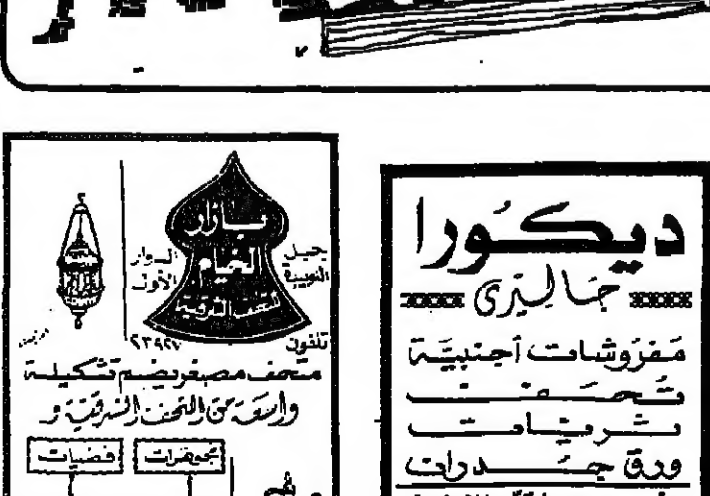 ديكورا
جاليري
مفروشات أجنبية
تحف
ثريات
ورق جدران
بازار
الشام
الدوار
الأول
تلفون
٢٣٩٢٧
متحف مصغر يضم تشكيلة
واسعة من التحف الشرقية و
مجوهرات
فضيات